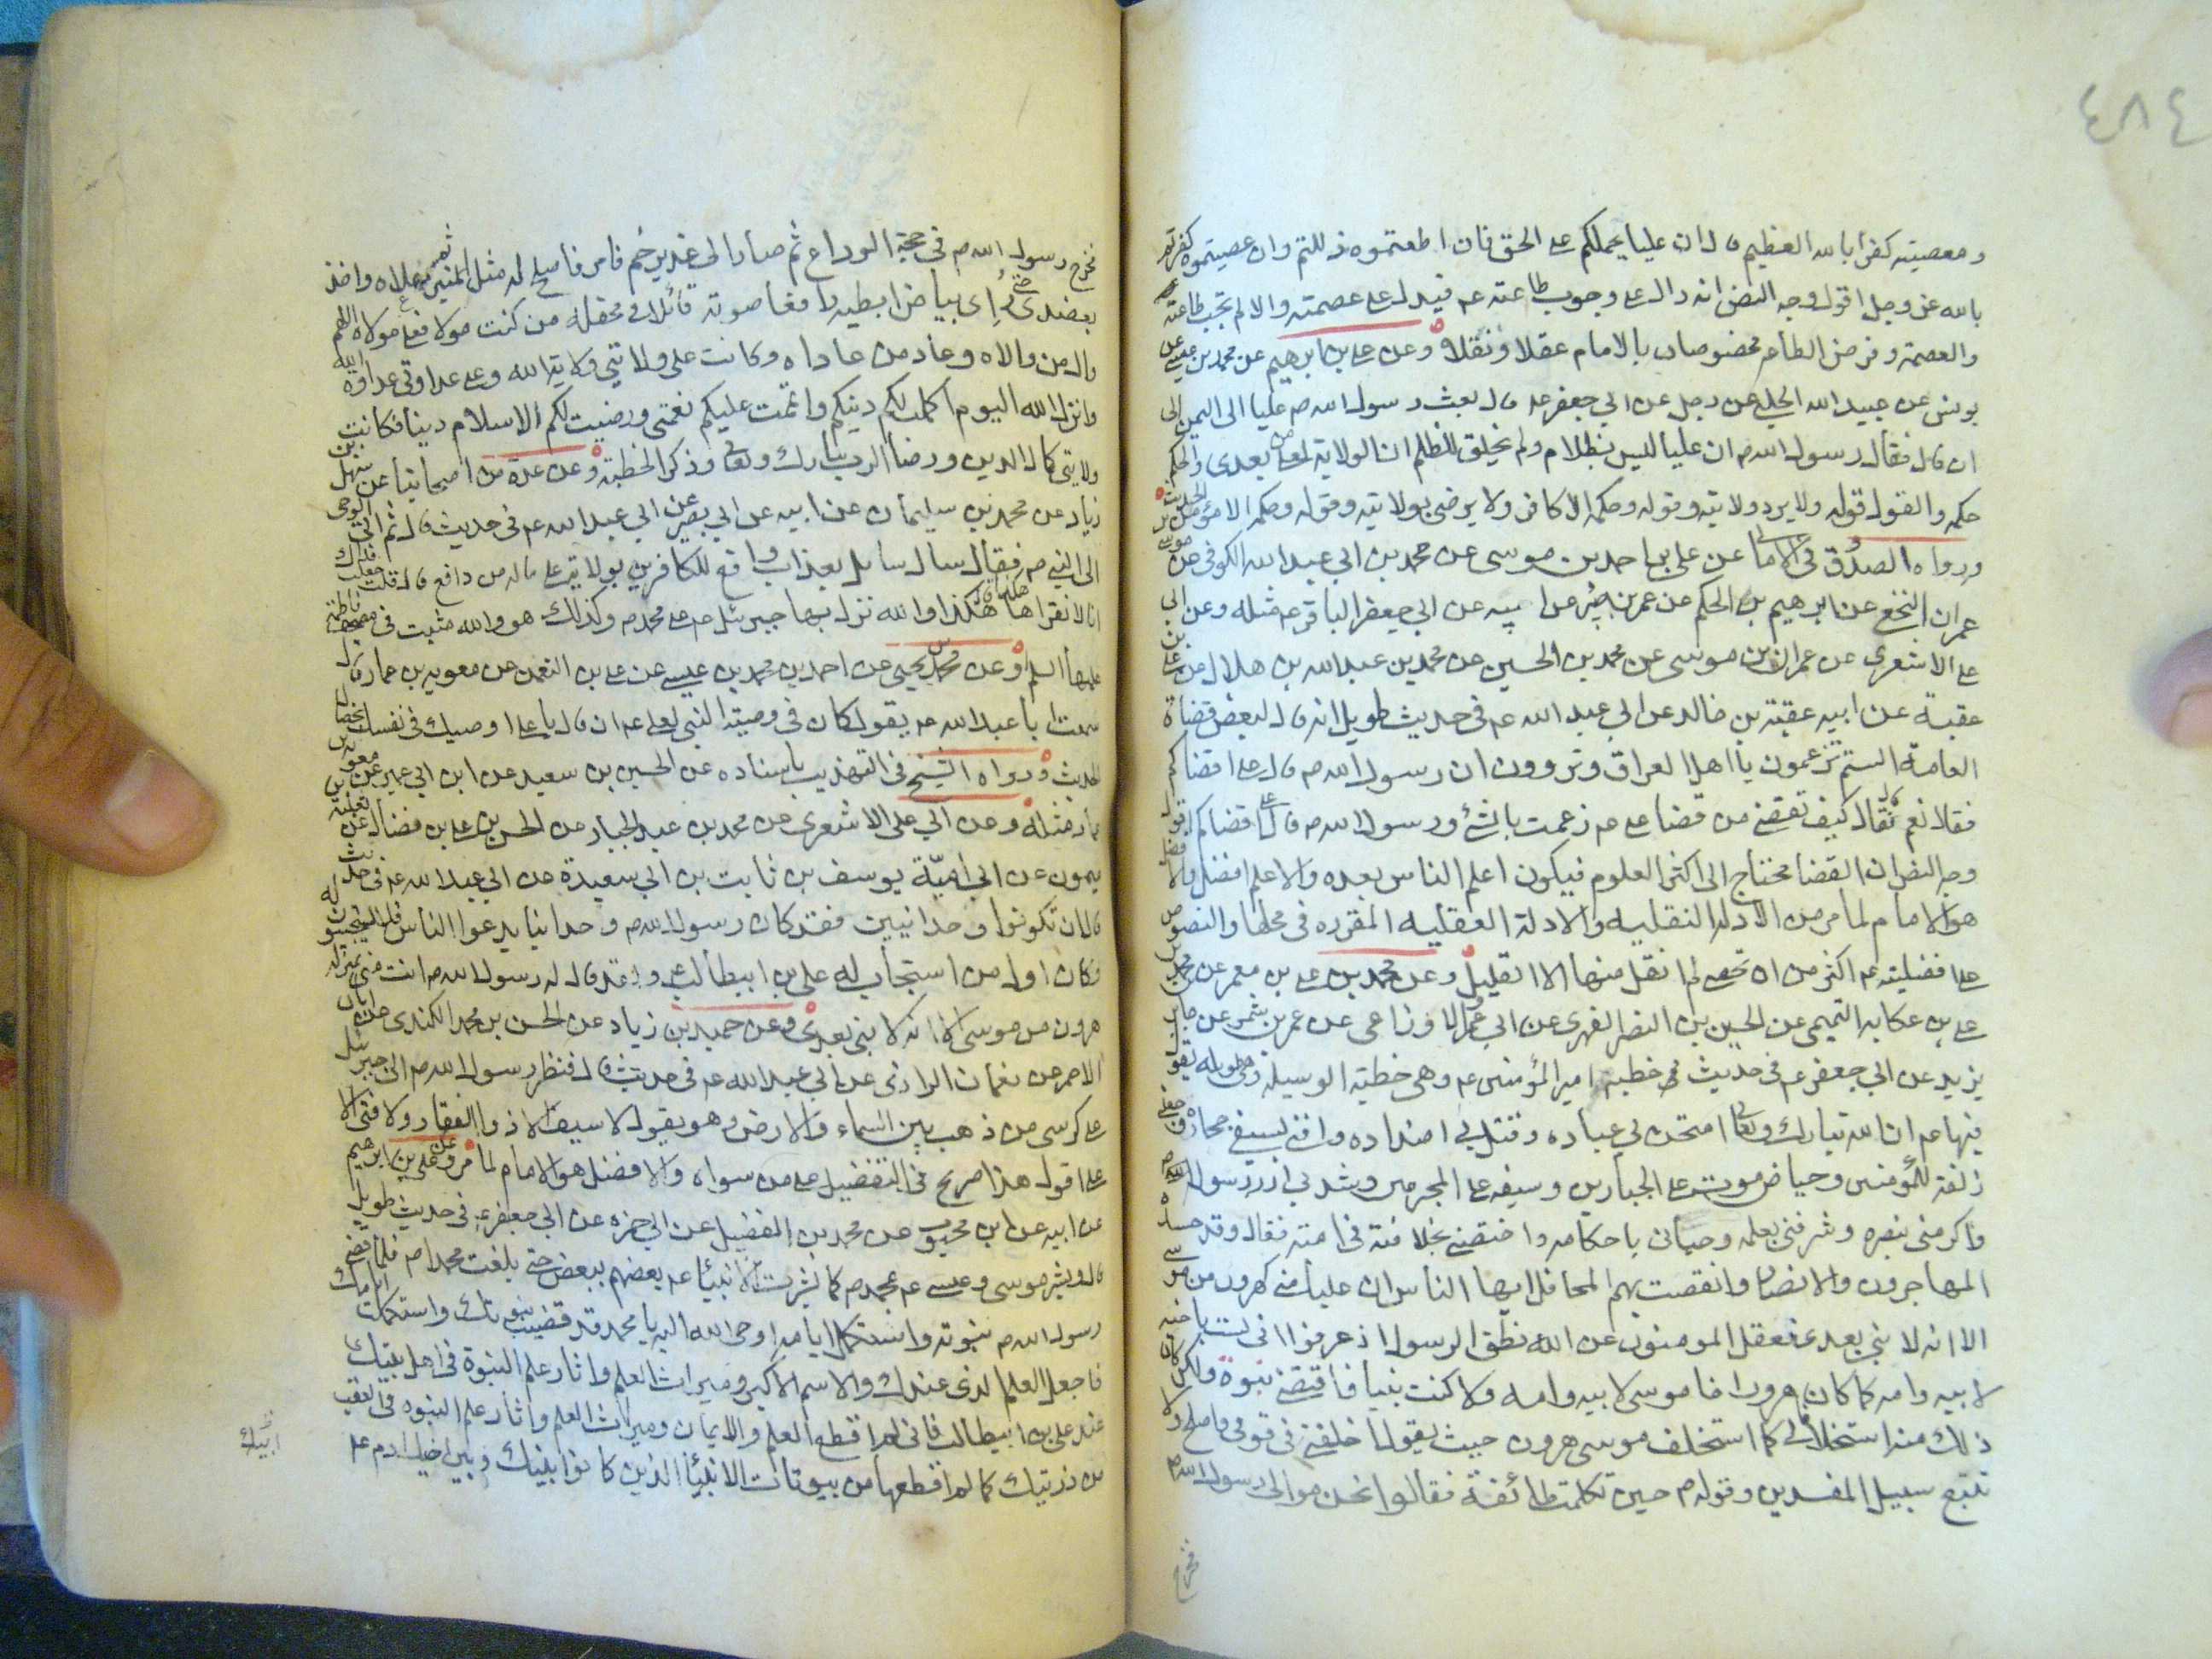 ٤٨٤
ومعصيته كفرا بالله العظيم قال ان عليا يحملكم على الحق فان اطعتموه ذللتم وان عصيتموه كفرتم
بالله عز وجل اقول وجه النص انه دال على وجوب طاعته عم فيدل على عصمته والا لم تجب طاعته
والعصمة وفرض الطاعة مخصوصان بالامام عقلا ونقلا وعن علي بن ابرهيم عن محمد بن عيسى عن
يونس عن عبيد الله الحلبي عن رجل عن ابي جعفر عم قال بعث رسول الله ص عليا الى اليمن الى
ان قال فقال رسول الله ص ان عليا ليس بظلام ولم يخلق للظلم ان الولاية لعلي من بعدي والحكم
حكمه والقول قوله ولا يرد ولايته وقوله وحكمه الا كافر ولا يرضى بولايته وقوله وحكمه الا مؤمن الحديث
ورواه الصدوق في الامالي عن علي بن احمد بن موسى عن محمد بن ابي عبد الله الكوفي عن موسى بن
عمران النخعي عن ابرهيم بن الحكم عن عمرو بن عن ابيه عن ابي جعفر الباقر عم مثله وعن ابي
علي الاشعري عن عمران بن موسى عن محمد بن الحسين عن محمد بن عبد الله بن هلال عن علي بن
عقبة عن ابيه عقبة بن خالد عن ابي عبد الله عم في حديث طويل انه قال لبعض قضاة
العامة الستم تزعمون يا اهل العراق وتروون ان رسول الله ص قال علي اقضاكم
فقلا نعم فقال كيف تقضي من قضا علي عم زعمت بالشئ ورسول الله ص قال علي اقضاكم اقول
وجه النص ان القضا محتاج الى اكثر العلوم فيكون اعلم الناس بعده والاعلم افضل والافضل
هو الامام لما مر من الادلة النقليه والادلة العقليه المقرره في محلها والنصوص
على افضليته عم اكثر من ان تحصى لم انقل منها الا القليل وعن محمد بن علي بن معمر عن محمد بن
علي بن عكايه التميمي عن الحسين بن النضر الفهري عن ابي عمرو الاوزاعي عن عمرو بن شمر عن جابر بن
يزيد عن ابي جعفر عم في حديث في خطبه امير المؤمنين عم وهي خطبة الوسيلة وهي طويله يقول
فيها عم ان الله تبارك وتعالى امتحن بي عباده وقتل بي اضداده وافنى بسيفي جحاده وجعلني
زلفة للمؤمنين وحياض موت على الجبارين وسيفه على المجرمين وشد بي ازر رسول الله ص
واكرمني بنصره وشرفني بعلمه وحباني باحكامه واختصني بخلافته في امته فقال وقد حشده
المهاجرون والانصار وانغصت بهم المحافل ايها الناس ان عليا مني كهرون من موسى
الا انه لا نبي بعدي فعقل المومنون عن الله نطق الرسول اذ عرفوا اني لست باخيه
لابيه وامه كما كان هرون اخا موسى لابيه وامه ولا كنت نبيا فاقتضى نبوة ولكن كان
ذلك منه استخلافا لي كما استخلف موسى هرون حيث يقول اخلفني في قومي واصلح ولا
تتبع سبيل المفسدين وقوله ص حين تكلمت طائفة فقالوا نحن موالي رسول الله ص
فخرج
فخرج رسول الله ص في حجة الوداع ثم صار الى غدير خم فامر فاصلح له مثل المنبر ثم علاه واخذ
بعضدي حتى رإى بياض ابطيه رافعا صوته قائلا في محفله من كنت مولاه فعلي مولاه اللهم
وال من والاه وعاد من عاداه وكانت على ولايتي ولاية الله وعلى عداوتي عداوة الله
وانزل الله اليوم اكملت لكم دينكم واتممت عليكم نعمتي ورضيت لكم الاسلام دينا فكانت
ولايتي كمال الدين ورضا الرب تبارك وتعالى وذكر الخطبة وعن عدة من اصحابنا عن سهل بن
زياد عن محمد بن سليمان عن ابيه عن ابي بصير عن ابي عبد الله عم في حديث قال ثم اتى الوحي
الى النبي ص فقال سال سايل بعذاب واقع للكافرين بولاية علي ماله من دافع قال قلت جعلت فداك
انا لا نقراها هكذا فقال هكذا والله نزل بها جبرئيل عم على محمد ص وكذلك هو والله مثبت في مصحف فاطمة
عليها السلم وعن محمد بن يحيى عن احمد بن محمد بن عيسى عن علي بن النعمن عن معوية بن عمار قال
سمعت ابا عبد الله عم يقول كان في وصية النبي لعلي عم ان قال يا علي اوصيك في نفسك بخصال
الحديث ورواه الشيخ في التهذيب باسناده عن الحسين بن سعيد عن ابن ابي عمير عن معوية بن
عمار مثله وعن ابي علي الاشعري عن محمد بن عبد الجبار عن الحسن بن علي بن فضال عن ثعلبة بن
ميمون عن ابي اميّة يوسف بن ثابت بن ابي سعيدة عن ابي عبد الله عم في حديث
قال ان تكونوا وحدانيين فقد كان رسول الله ص وحدانيا يدعوا الناس فلا يستجيبون له
وكان اول من استجاب له علي بن ابيطالب عم وقد قال له رسول الله ص انت مني بمنزلة
هرون من موسى الا انه لا نبي بعدي وعن حميد بن زياد عن الحسن بن محمد الكندي عن ابان
الاحمر عن نعمان الرازي عن ابي عبد الله عم في حديث قال فنظر رسول الله ص الى جبرئيل
على كرسي من ذهب بين السماء والارض وهو يقول لا سيف الا ذو الفقار ولا فتى الا
علي اقول هذا صريح في التفضيل على من سواه والافضل هو الامام لما مر وعن علي بن ابرهيم
عن ابيه عن ابن محبوب عن محمد بن الفضيل عن ابي حمزه عن ابي جعفر عم في حديث طويل
قال وبشر موسى وعيسى عم بمحمد ص كما بشرت الانبيئا عم بعضهم ببعض حتى بلغت محمدا ص فلما قضى
رسول الله ص نبوته واستكمل ايامه اوحى الله اليه يا محمد قد قضيت نبوتك واستكملت ايامك
فاجعل العلم الذي عندك والاسم الاكبر وميراث العلم واثار علم النبوة في اهل بيتك
عند علي بن ابيطالب فاني لم اقطع العلم والايمان وميراث العلم واثار علم النبوه في العقب
من ذريتك كما لم اقطعها من بيوتات الانبيئا الذين كانوا بينك وبين ابيك ادم عم
ابيك